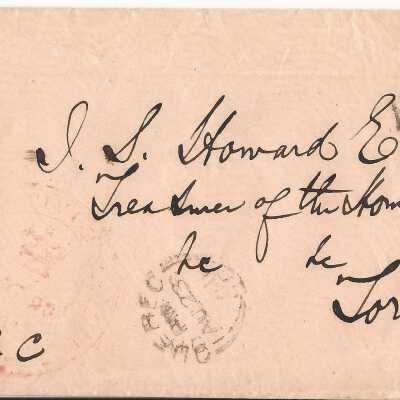 J. S. Howard E
Treasurer of the Hom
&c &c
Tor
C
QUEBEC